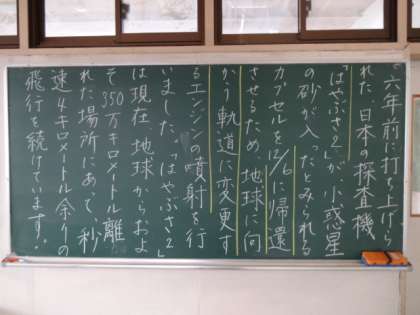 六年前に打ち上げら
れた、日本の探査機
「はやぶさ2」が、小惑星
の砂が入ったとみられる
カプセルを12/6に帰還
させるため、地球に向
かう軌道に変更す
るエンジンの噴射を行
いました。「はやぶさ2」
は現在、地球からおよ
そ350万キロメートル離
れた場所にあて、秒
速4キロメートル余りの
飛行を続けています。